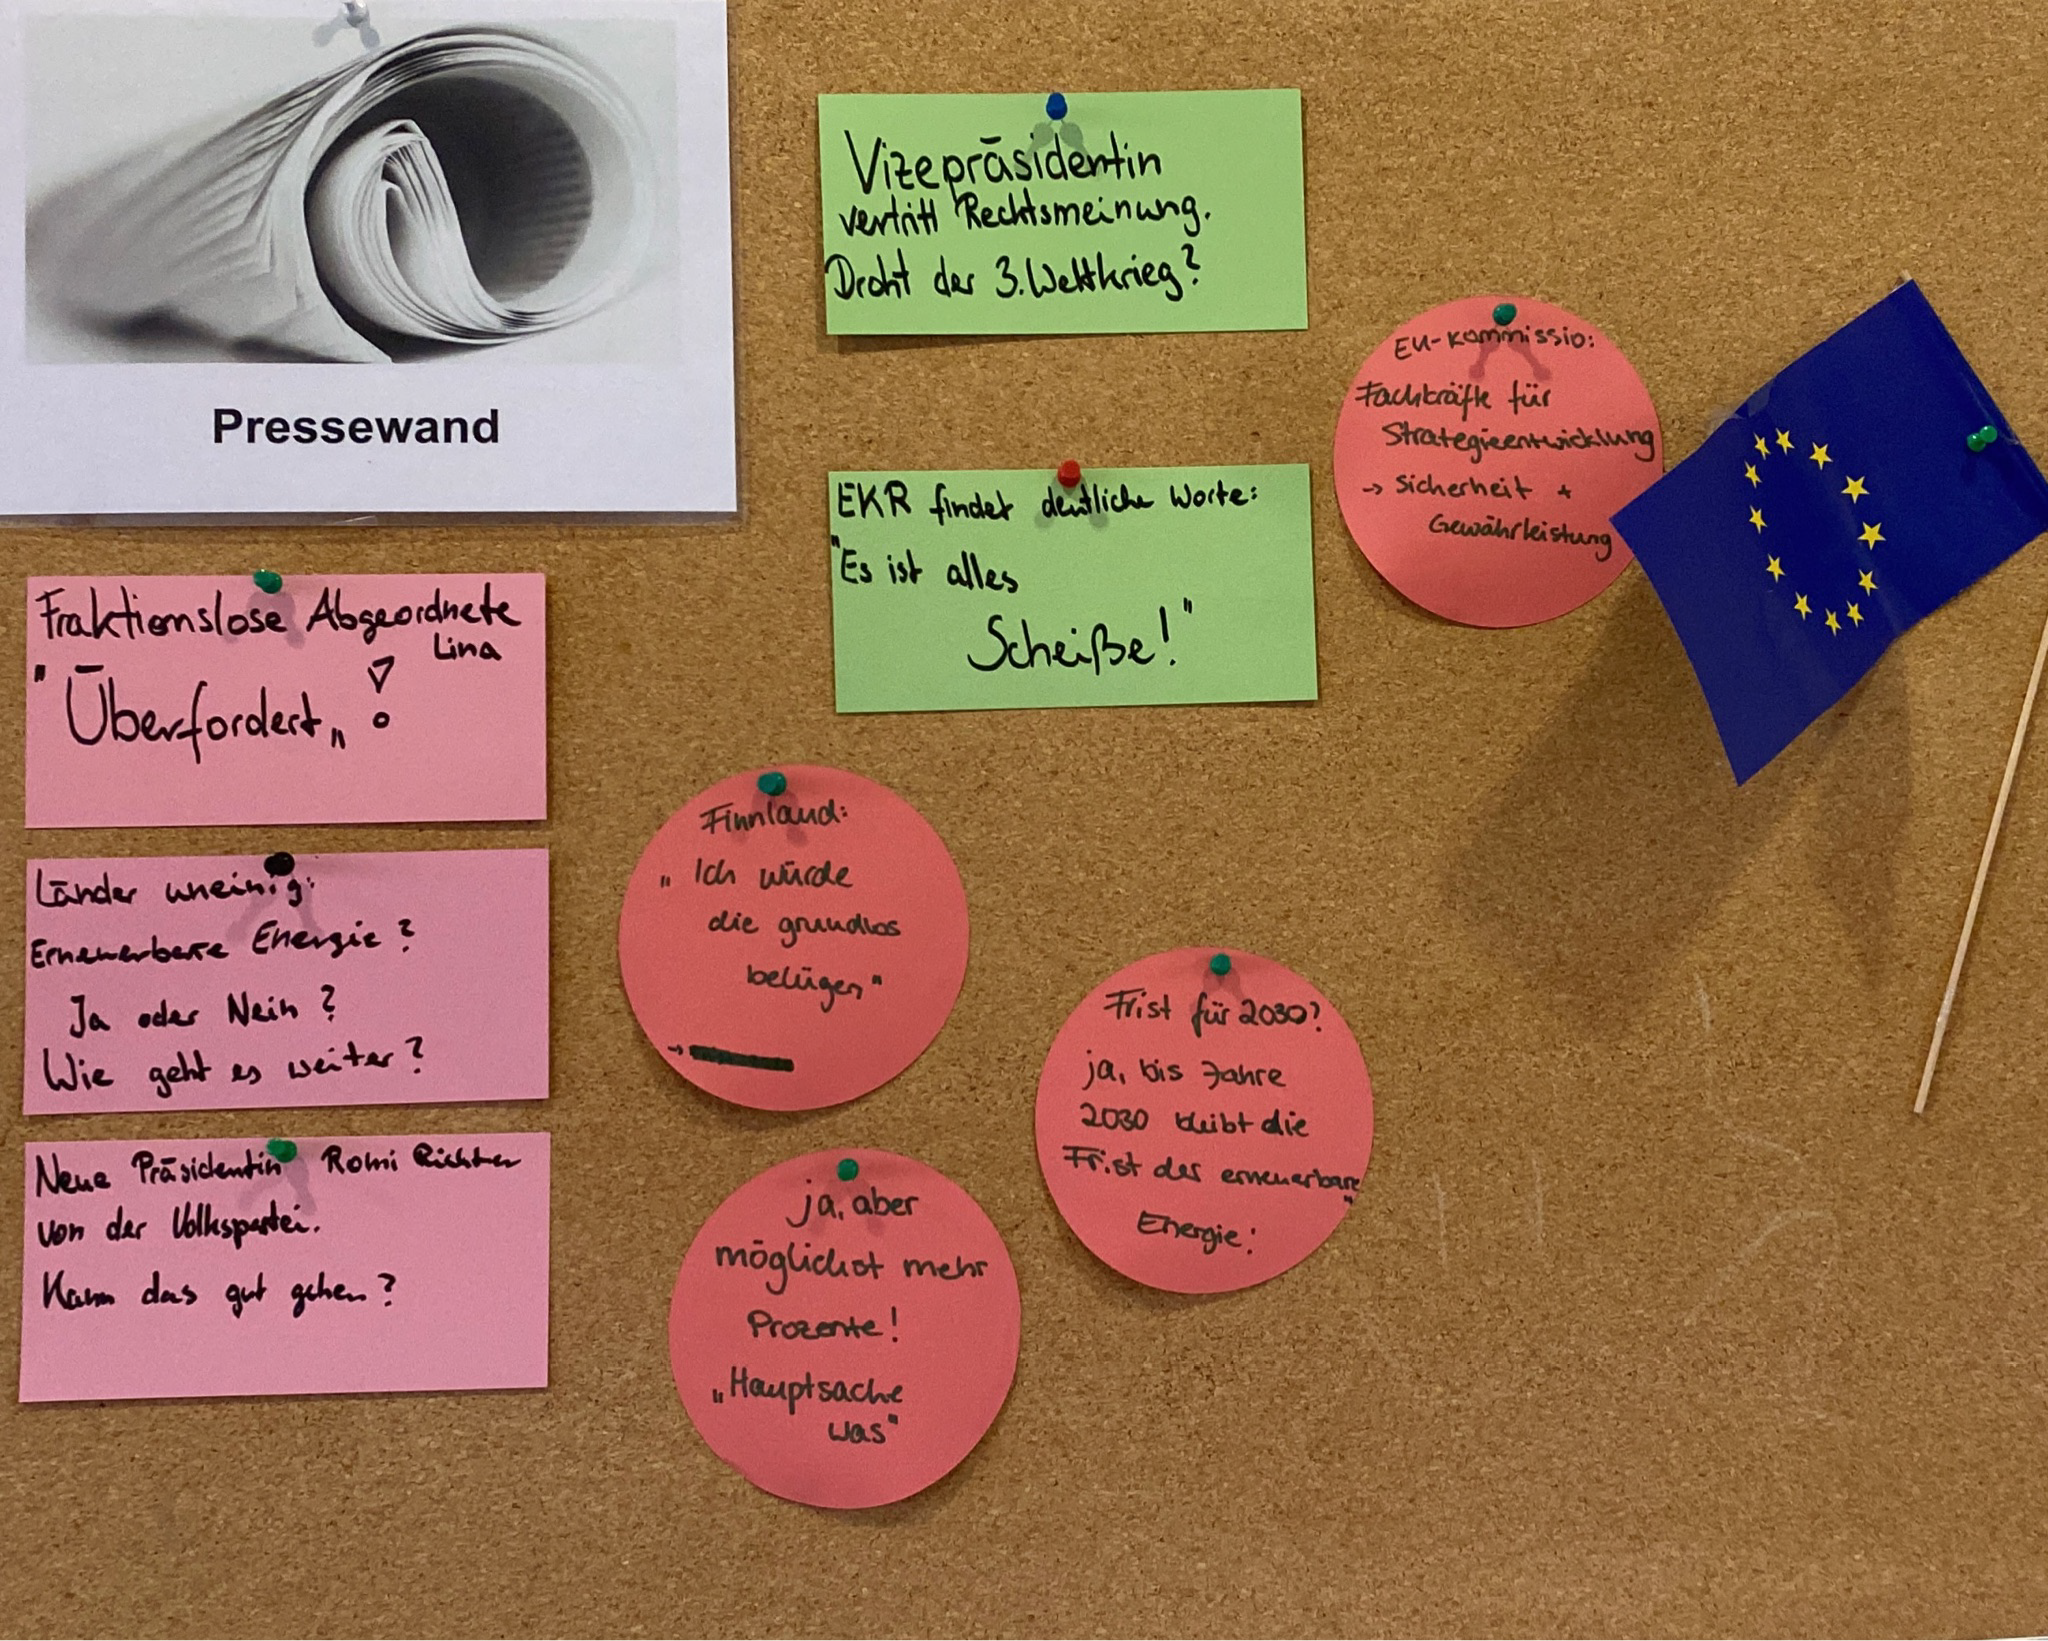 Pressewand
Vizepräsidentin
vertritt Rechtsmeinung.
Droht der 3. Weltkrieg?
EKR findet deutliche Worte:
"Es ist alles
Scheiße!"
EU-Kommissio:
Fachkräfte für
Strategieentwicklung
→ Sicherheit +
Gewährleistung
Fraktionslose Abgeordnete
Lina
"Überfordert„ !
Länder uneinig:
Erneuerbare Energie?
Ja oder Nein?
Wie geht es weiter?
Neue Präsidentin Romi Richter
von der Volkspartei.
Kann das gut gehen?
Finnland:
„Ich würde
die grundlos
belügen"
→
Frist für 2030?
ja, bis Jahre
2030 bleibt die
Frist der erneuerbare
Energie!"
ja, aber
möglichst mehr
Prozente!
„Hauptsache
was"